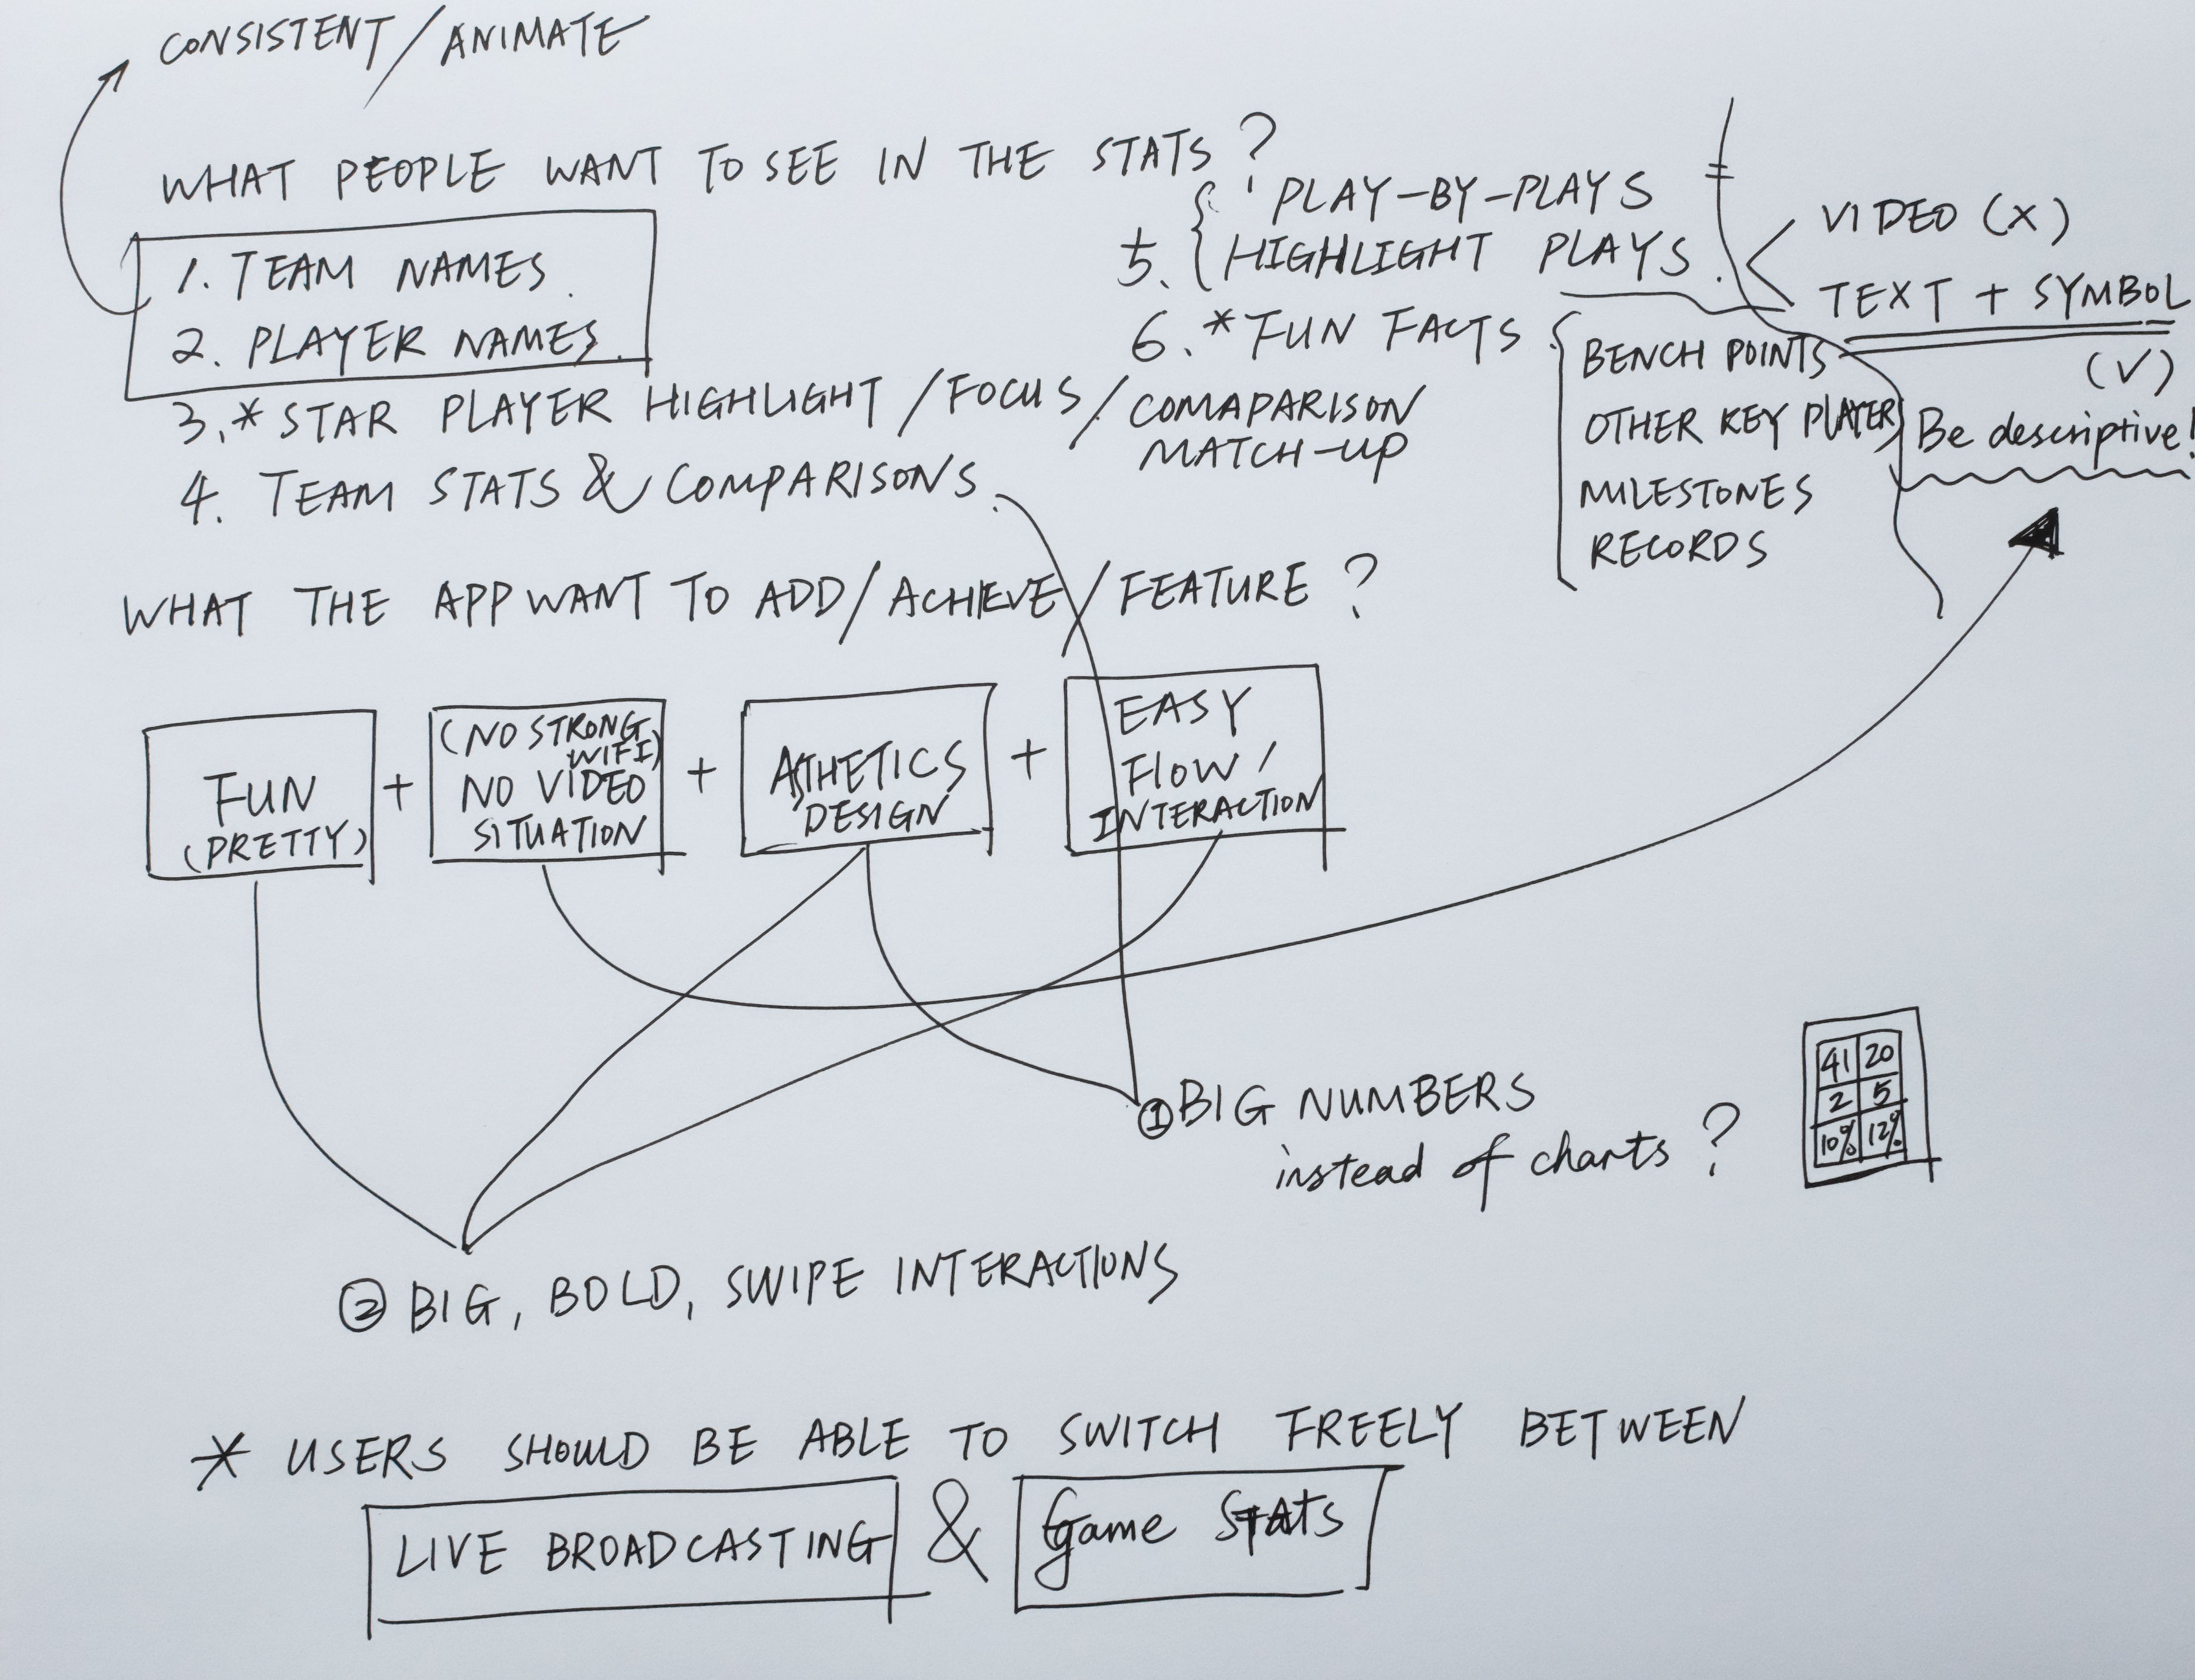 CONSISTENT/ANIMATE
WHAT PEOPLE WANT TO SEE IN THE STATS?
1. TEAM NAMES.
2. PLAYER NAMES.
3.*STAR PLAYER HIGHLIGHT/FOCUS/COMAPARISON
MATCH-UP
4. TEAM STATS & COMPARISONS.
5. { PLAY-BY-PLAYS
HIGHLIGHT PLAYS.
VIDEO (X)
TEXT + SYMBOL
(V)
Be descriptive!
6.*FUN FACTS {
BENCH POINTS
OTHER KEY PLAYERS
MILESTONES
RECORDS
WHAT THE APP WANT TO ADD/ACHIEVE/FEATURE?
FUN
(PRETTY)
+
(NO STRONG
WIFI)
NO VIDEO
SITUATION
+
ASTHETICS
DESIGN
+
EASY
FLOW/
INTERACTION
① BIG NUMBERS
instead of charts?
41 20
2 5
10% 12%
② BIG, BOLD, SWIPE INTERACTIONS
* USERS SHOULD BE ABLE TO SWITCH FREELY BETWEEN
LIVE BROADCASTING & Game Stats